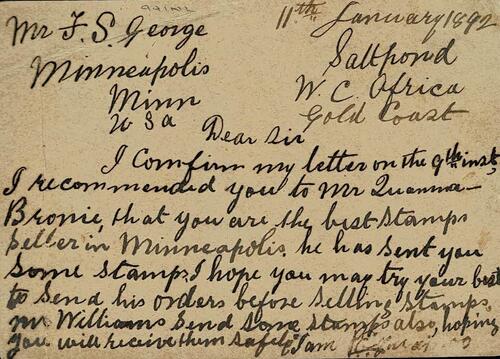 11th January 1892
Mr F. S. George
Saltpond
Minneapolis
W. C. Africa
Minn
Gold Coast
U S a
Dear Sir
I Comfirm my letter on the 9th inst,
I recommended you to Mr Quanna-
Bronie, that you are the best stamps
seller in Minneapolis. he has sent you
some stamps. I hope you may try your best
to send his orders before selling stamps,
mr Williams send some stamps also, hoping
you will receive them safely I am